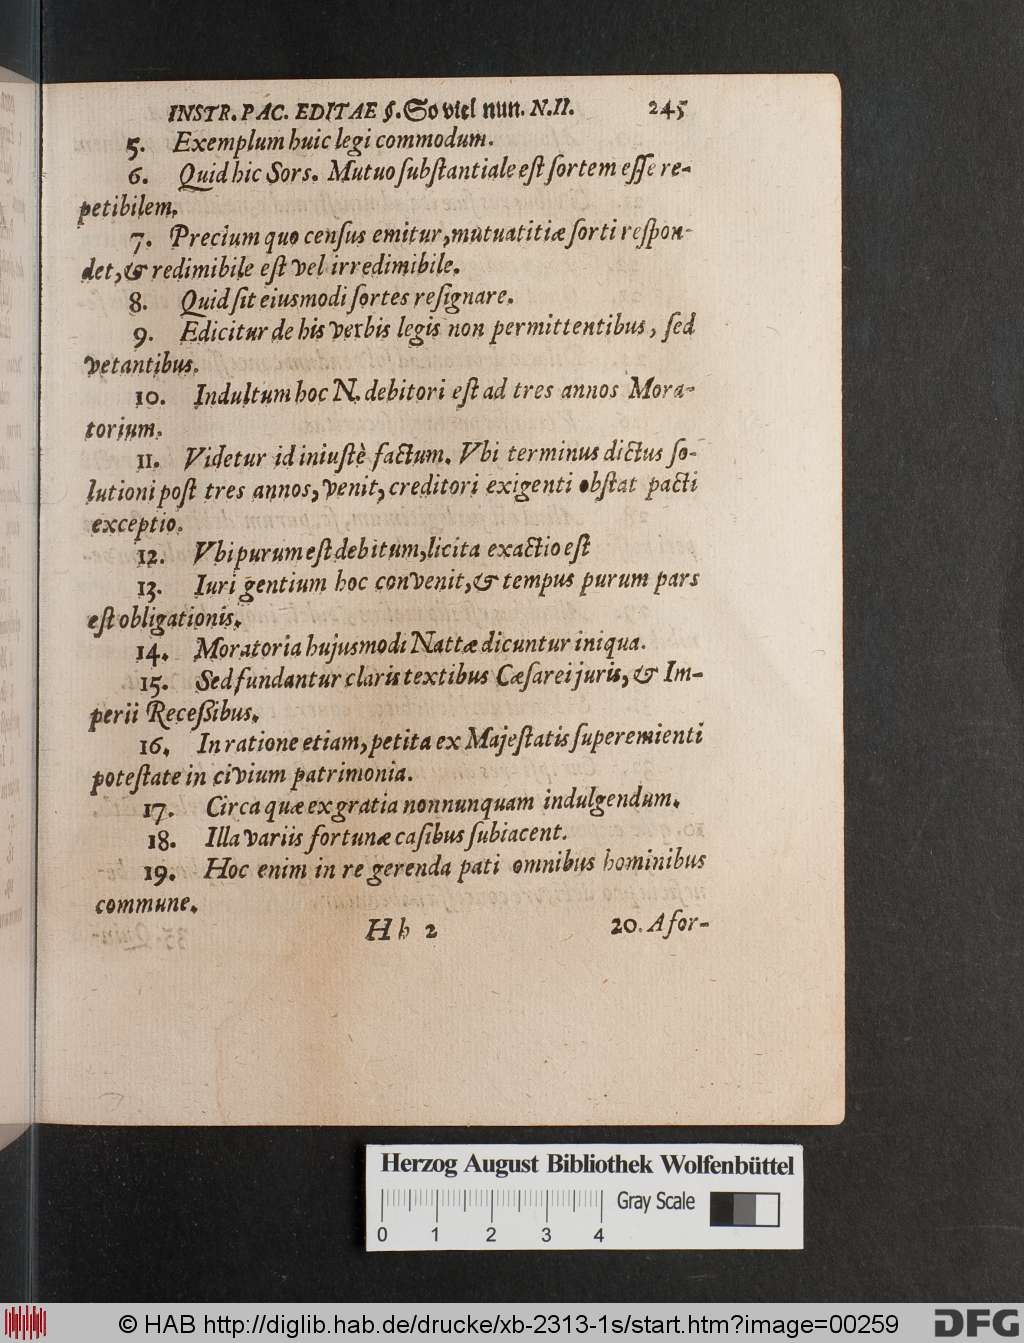 INSTR. PAC. EDITAE §. So viel nun. N. II. 245
5. Exemplum huic legi commodum.
6. Quid hic Sors. Mutuo ſubſtantiale eſt ſortem eſſe re-
petibilem.
7. Precium quo cenſus emitur, mutuatitiæ ſorti reſpon-
det, & redimibile eſt vel irredimibile.
8. Quid ſit eiusmodi ſortes reſignare.
9. Edicitur de his verbis legis non permittentibus, ſed
vetantibus.
10. Indultum hoc N. debitori eſt ad tres annos Mora-
torium.
11. Videtur id iniuſtè factum. Vbi terminus dictus ſo-
lutioni poſt tres annos, venit, creditori exigenti obſtat pacti
exceptio.
12. Vbi purum eſt debitum, licita exactio eſt
13. Iuri gentium hoc convenit, & tempus purum pars
eſt obligationis.
14. Moratoria hujusmodi Nattæ dicuntur iniqua.
15. Sed fundantur claris textibus Cæſarei juris, & Im-
perii Receßibus.
16. In ratione etiam, petita ex Majeſtatis ſuperemienti
poteſtate in civium patrimonia.
17. Circa quæ ex gratia nonnunquam indulgendum.
18. Illa variis fortunæ caſibus ſubiacent.
19. Hoc enim in re gerenda pati omnibus hominibus
commune.
Hh 2 20. A for-
Herzog August Bibliothek Wolfenbüttel
Gray Scale
0 1 2 3 4
© HAB http://diglib.hab.de/drucke/xb-2313-1s/start.htm?image=00259
DFG